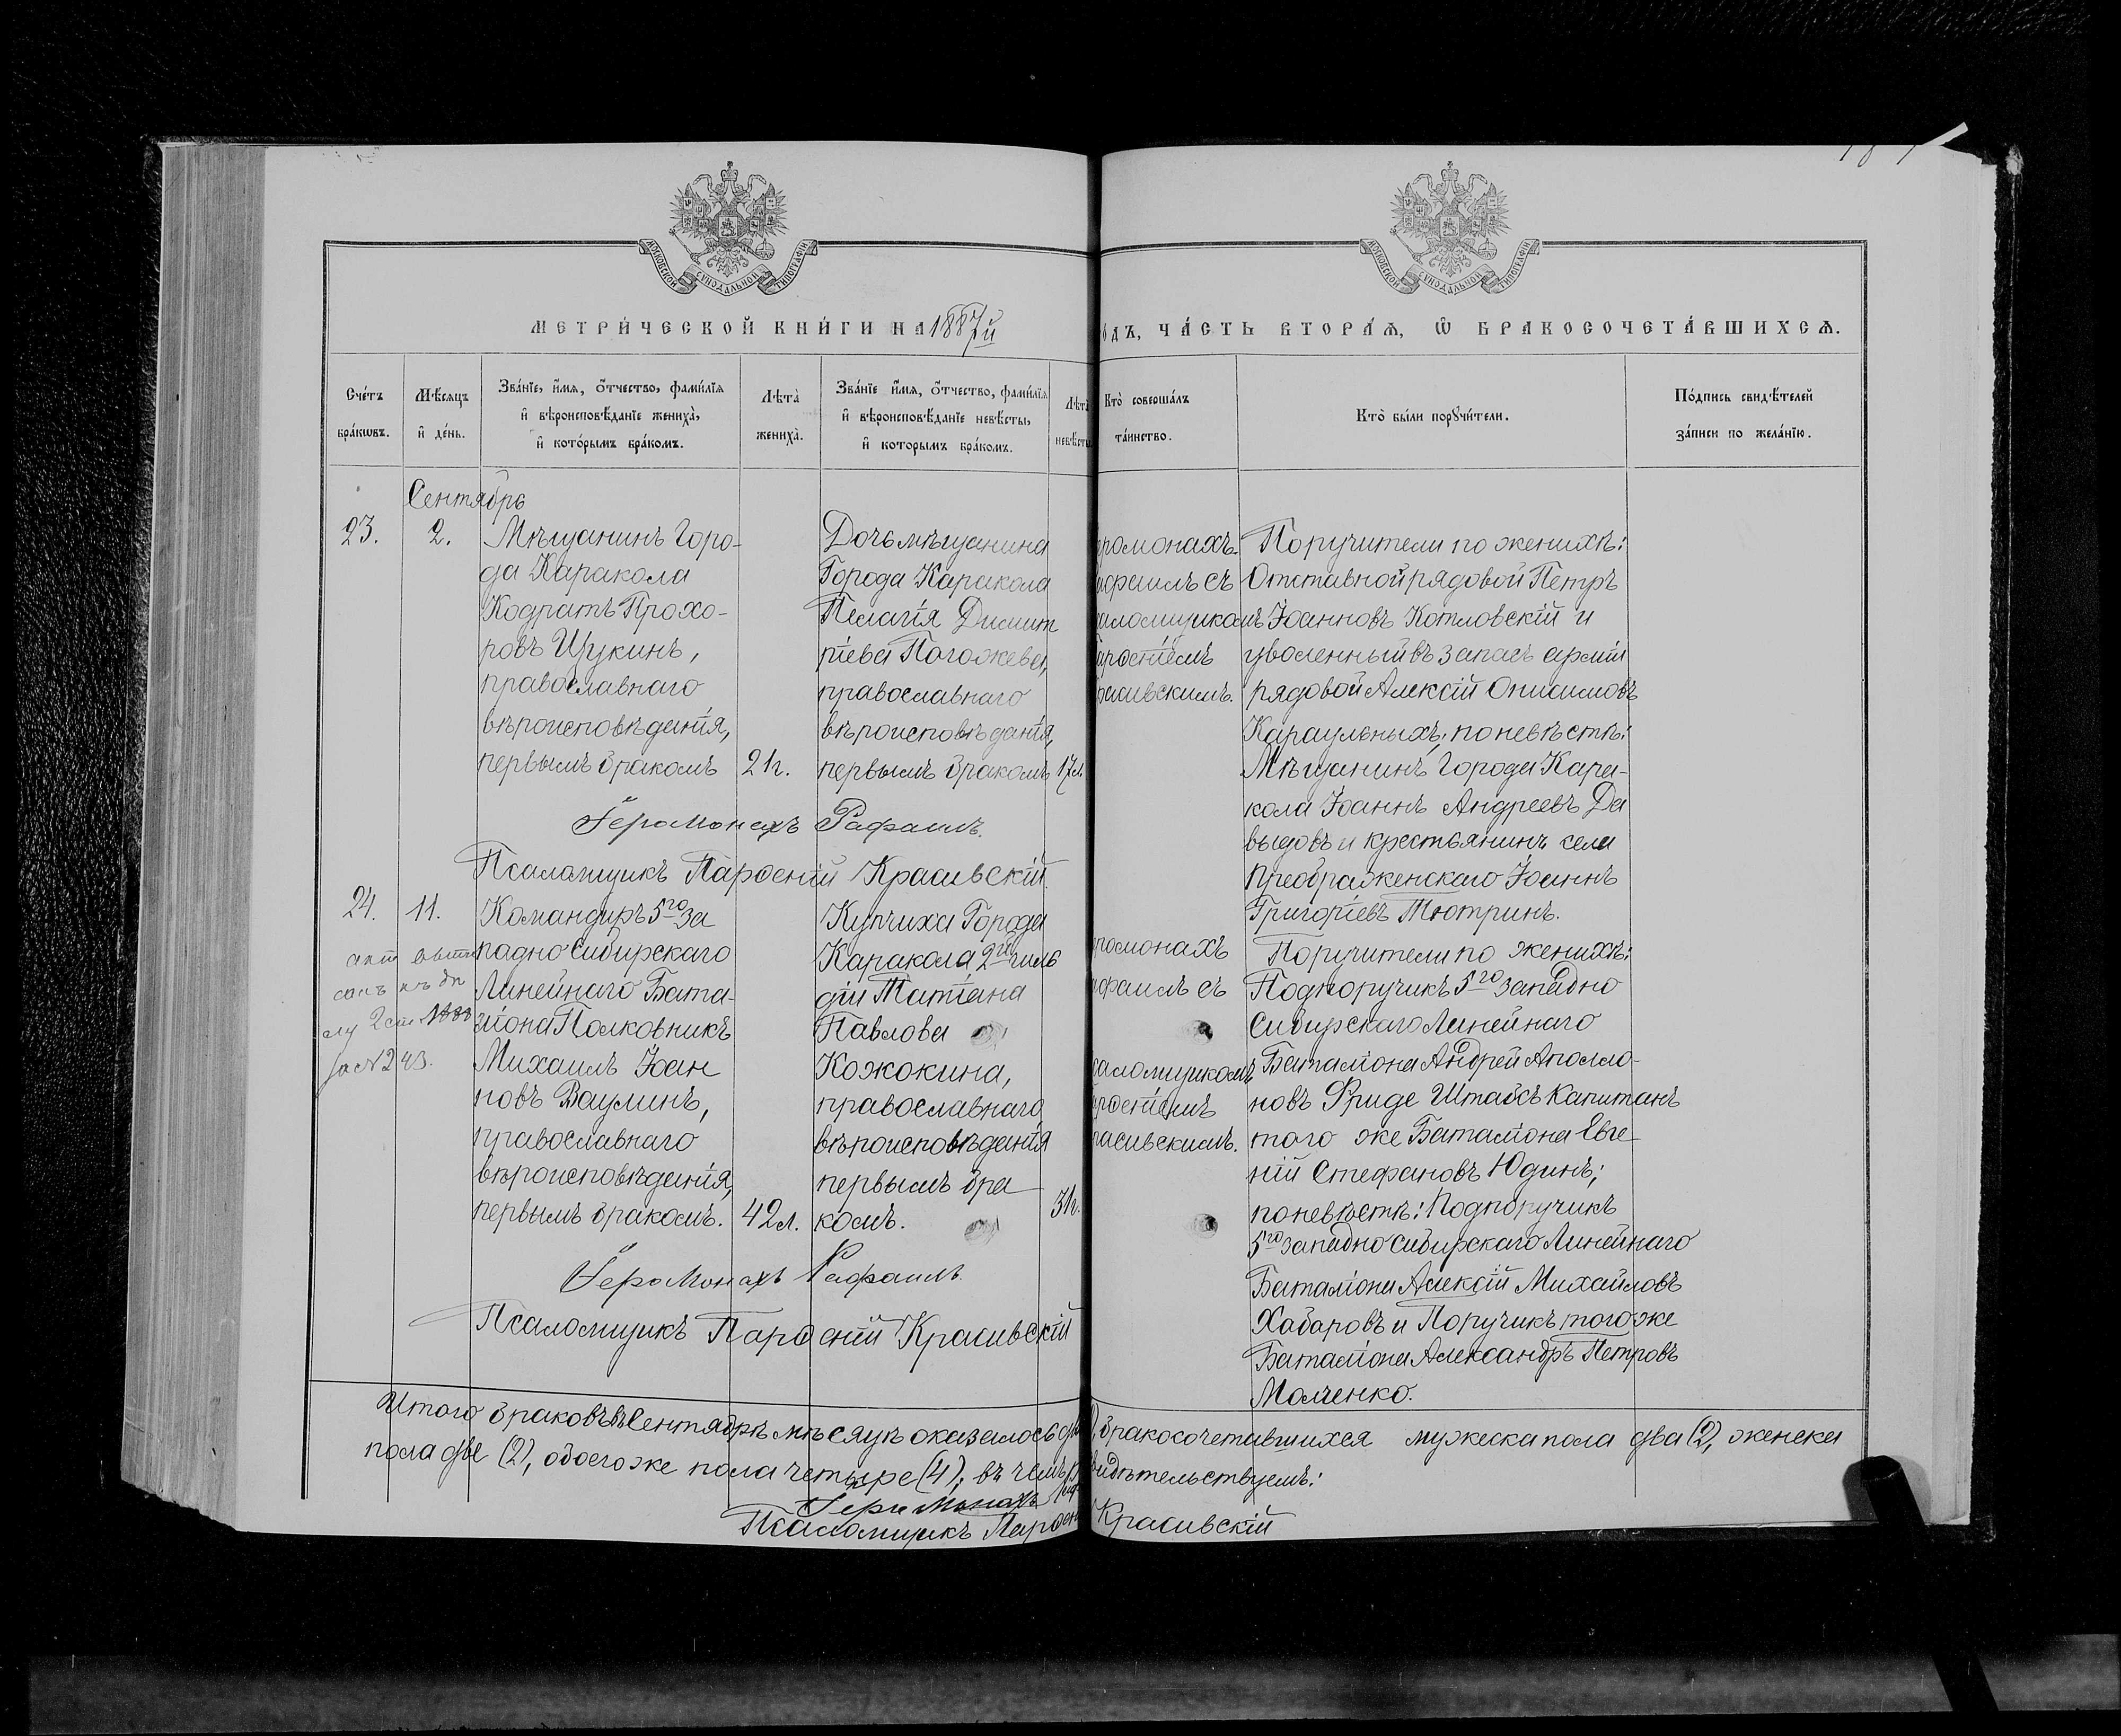 МОСКОВСКОЙ СѴНОДАЛЬНОЙ ТИПОГРАФІИ
МОСКОВСКОЙ СѴНОДАЛЬНОЙ ТИПОГРАФІИ
МЕТРИ́ЧЕСКОЙ КНИ́ГИ НА 1887й
одъ, ЧА́СТЬ ВТОРА́Ѧ, Ѡ҆ БРАКОСОЧЕТА́ВШИХСѦ.
Сче́тъ
бра́кѡвъ.
Мѣ́сѧцъ
и҆ де́нь.
Зва́нїе, и҆́мѧ, ѻ҆́тчество, фами́лїѧ
и҆ вѣроисповѣ́данїе жениха̀,
и҆ кото́рымъ бра́комъ.
Лѣта̀
жениха̀.
Зва́нїе и҆́мѧ, ѻ҆́тчество, фами́лїѧ
и҆ вѣроисповѣ́данїе невѣ́сты,
и҆ которымъ бра́комъ.
Лѣта̀
невѣ́сты
Кто̀ соверша́лъ
та́инство.
Кто̀ бы́ли порꙋчи́тели.
По́дпись свидѣ́телей
за́писи по жела́нїю.
Сентябрь
23.
2.
Мѣщанинъ Горо-
да Каракола
Кодратъ Прохо-
ровъ Щукинъ,
православнаго
вѣроисповѣданія,
первымъ бракомъ
21г.
Дочь мѣщанина
Города Каракола
Пелагія Димит
ріева Погожева,
православнаго
вѣроисповѣданія,
первымъ бракомъ
17л.
еромонахъ
афаилъ съ
аломщикомъ
арѳеніемъ
расивскимъ.
Поручители по женихѣ:
Отставной рядовой Петръ
Іоанновъ Котловскій и
уволенный въ запасъ арміи
рядовой Алексій Онисимовъ
Караульныхъ; по невѣстѣ:
Мѣщанинъ Города Кара-
кола Іоаннъ Андреевъ Да
выдовъ и крестьянинъ села
Преображенскаго Іоаннъ
Григоріевъ Тютринъ.
Іеромонахъ Рафаилъ.
Псаломщикъ Парѳеній Красивскій
24.
11.
Командиръ 5го За
падно Сибирскаго
Линейнаго Бата-
ліона Полковникъ
Михаилъ Іоан
новъ Ваулинъ,
православнаго
вѣроисповѣданія,
первымъ бракомъ.
42л.
Купчиха Города
Каракола 2й гиль
діи Татіана
Павлова
Кожокина,
православнаго
вѣроисповѣданія
первымъ бра
комъ.
31г.
за № 243.
ромонахъ
афаилъ съ
аломщикомъ
арѳеніемъ
расивскимъ.
Поручители по женихѣ:
Подпоручикъ 5го Западно
Сибирскаго Линейнаго
Баталіона Андрей Аполло-
новъ Фриде Штабсъ Капитанъ
того же Баталіона Евге-
ній Стефановъ Юдинъ;
по невѣстѣ: Подпоручикъ
5го Западно Сибирскаго Линейнаго
Баталіона Алексій Михайловъ
Хабаровъ и Поручикъ того же
Баталіона Александръ Петровъ
Молченко.
Іеромонахъ Рафаилъ.
Псаломщикъ Парѳеній Красивскій
Итого браковъ въ Сентябрѣ мѣсяцѣ оказалось два, бракосочетавшихся мужеска пола два (2), женска
пола две (2), обоего же пола четыре (4), въ чемъ свидѣтельствуемъ:
Іеромонахъ
Псаломщикъ Парѳен Красивскій